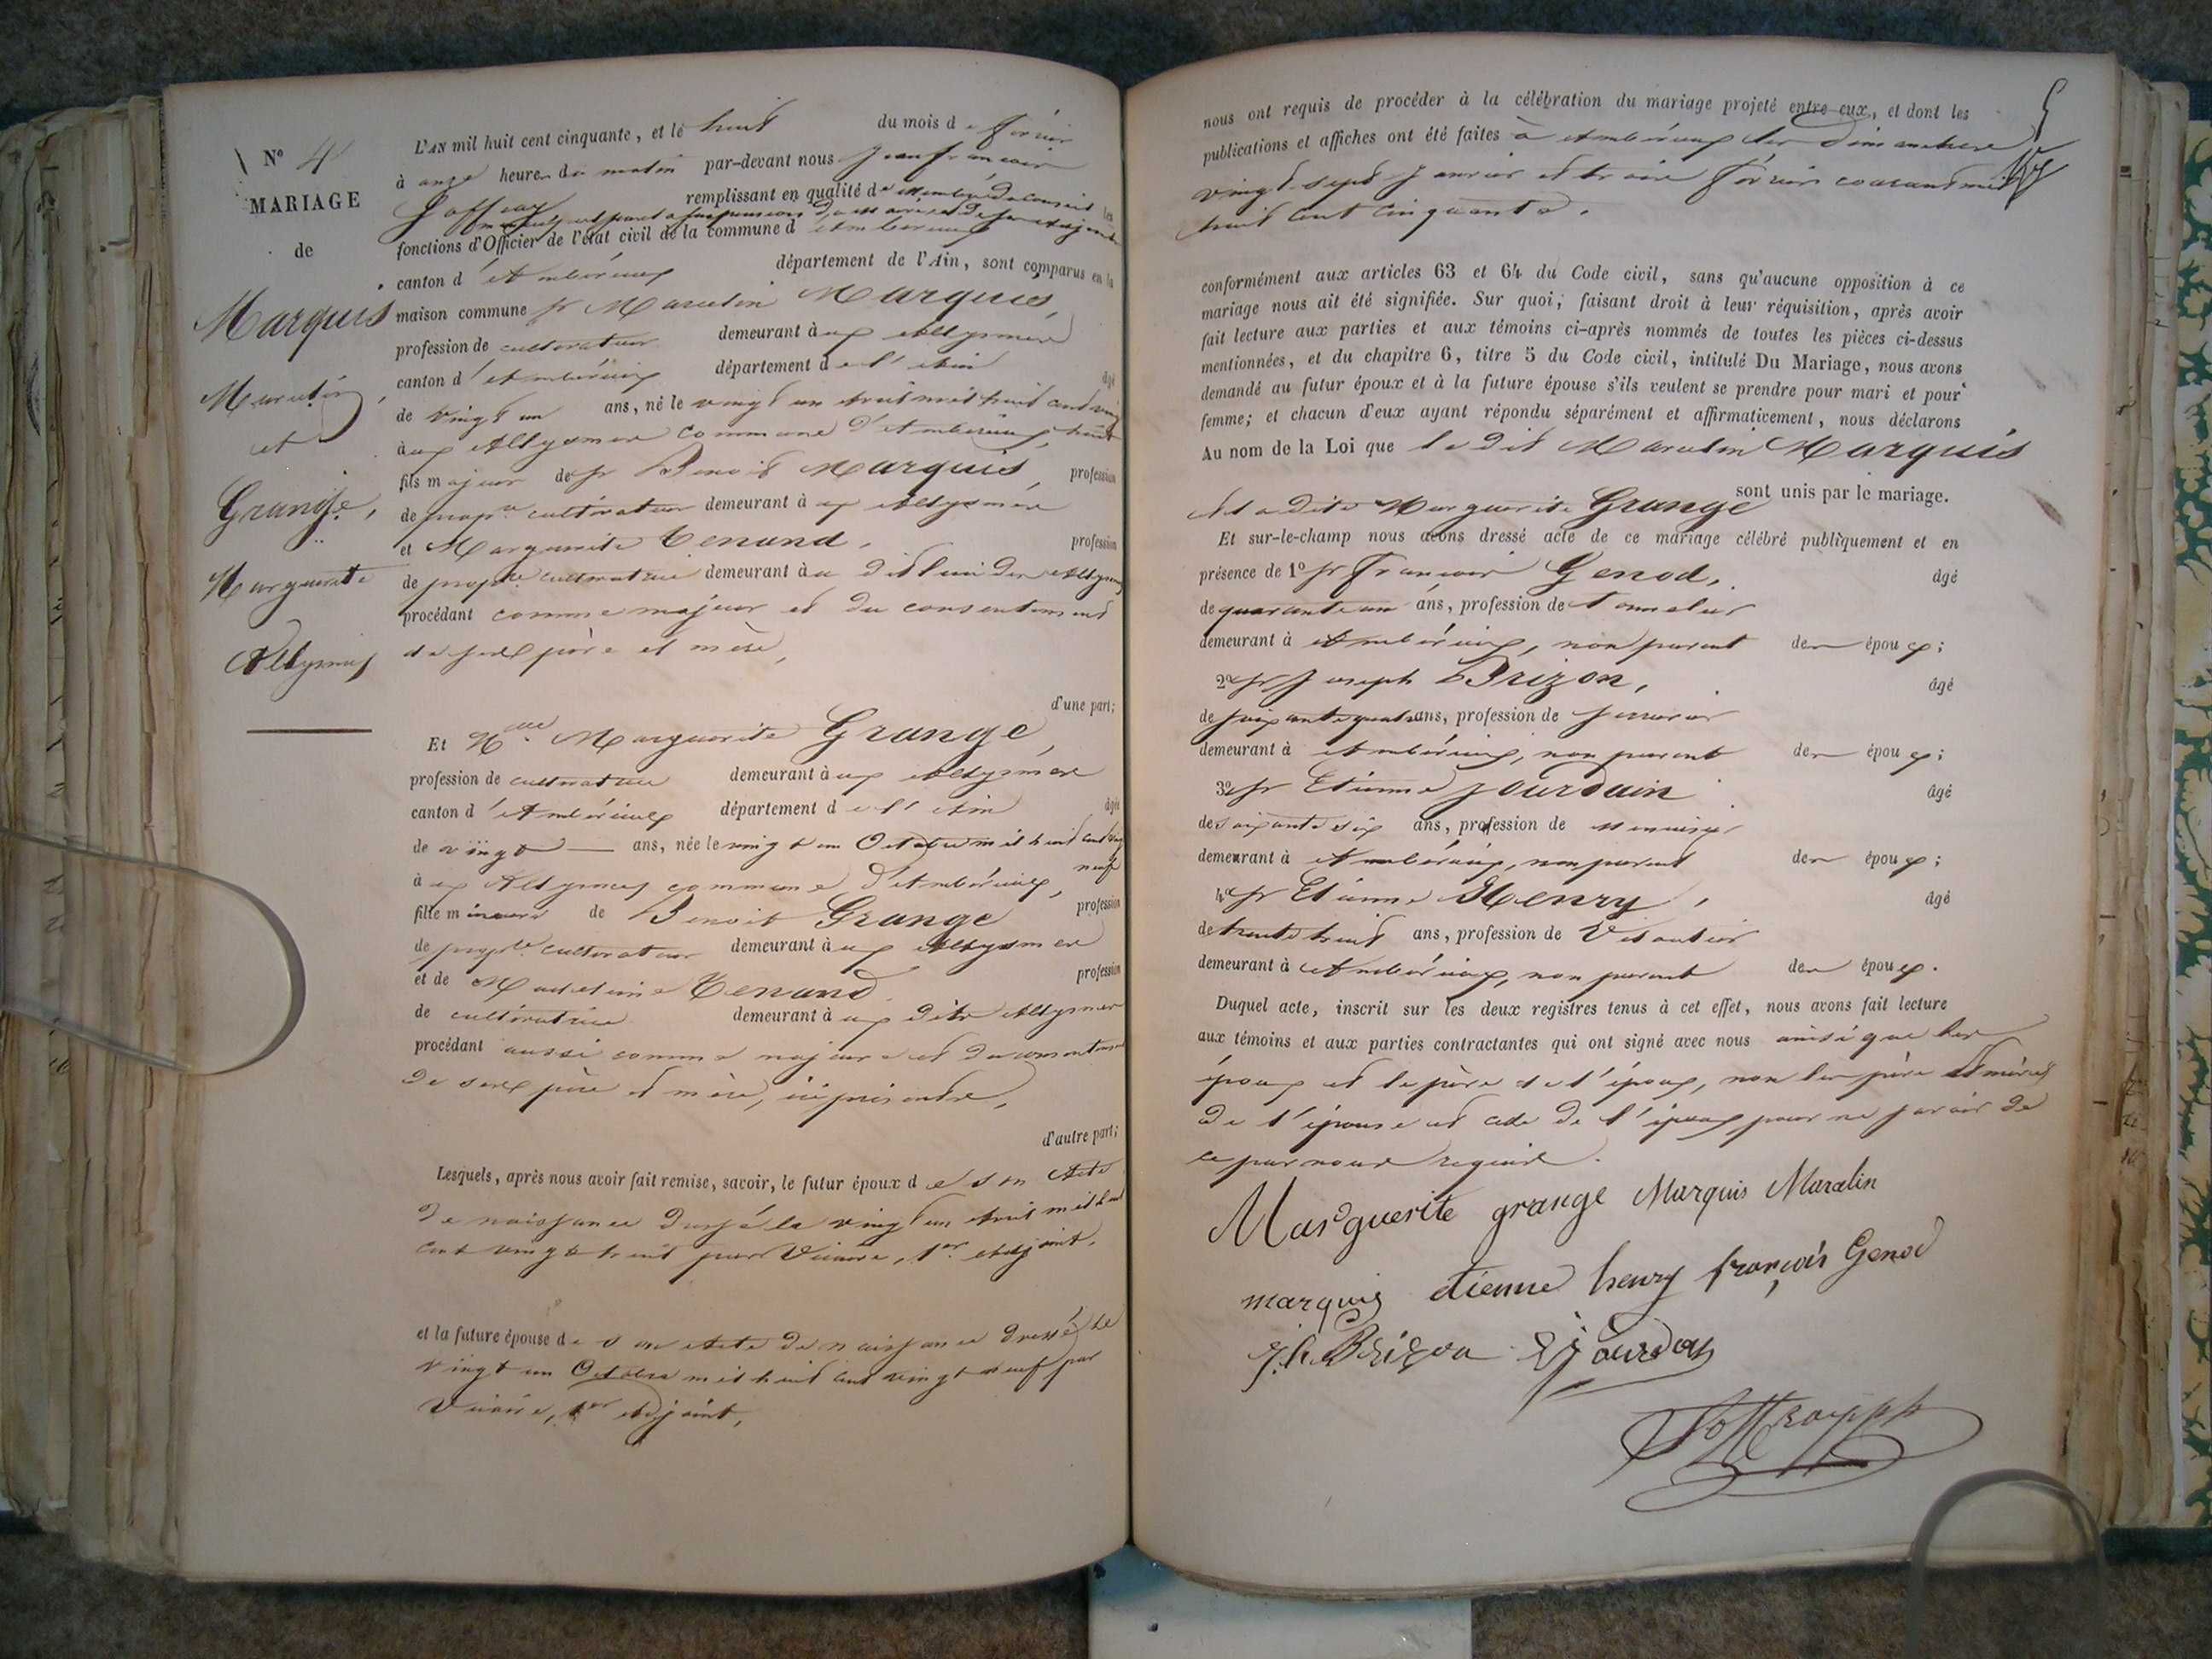 N° 4
MARIAGE
de
Marquis
Marcelin
et
Grange,
Marguerite
Allymes
L'AN mil huit cent cinquante, et le huit du mois de février
à onze heures du matin par-devant nous Jean françois
remplissant en qualité de membre du conseil les
fonctions d'Officier de l'état civil de la commune d'Ambérieux
canton d'Ambérieux département de l'Ain, sont comparus en la
maison commune sr Marcelin Marquis,
profession de cultivateur demeurant aux Allymes
canton d'Ambérieux département de l'Ain âgé
de vingt un ans, né le vingt un avril mil huit cent vingt
aux Allymes commune d'Ambérieux, huit
fils majeur de sr Benoit Marquis, profession
de propre cultivateur demeurant à ux Allymes
et Marguerite Tenand, profession
de propre cultivatrice demeurant au dit lieu des Allymes
procédant comme majeur et du consentement
de ses père et mère,
d'une part;
Et Mlle Marguerite Grange,
profession de cultivatrice demeurant à ux Allymes
canton d'Ambérieux département de l'Ain âgée
de vingt — ans, née le vingt un Octobre mil huit cent vingt
à ux Allymes commune d'Ambérieux, neuf
fille mineure de Benoit Grange profession
de propre cultivateur demeurant à ux Allymes
et de Madelaine Tenand profession
de cultivatrice demeurant à ux dits Allymes
procédant aussi comme majeure et du consentement
de ses père et mère, ici présents,
d'autre part;
Lesquels, après nous avoir fait remise, savoir, le futur époux de son Acte
de naissance dressé le vingt un Avril mil huit
cent vingt huit par 1er Adjoint.
et la future épouse de son Acte de naissance dressé le
vingt un Octobre mil huit cent vingt neuf par
1er Adjoint,
nous ont requis de procéder à la célébration du mariage projeté entre eux, et dont les
publications et affiches ont été faites à Ambérieux les Dimanches
vingt-sept Janvier et trois février courant mil
huit cent cinquante.
conformément aux articles 63 et 64 du Code civil, sans qu'aucune opposition à ce
mariage nous ait été signifiée. Sur quoi, faisant droit à leur réquisition, après avoir
fait lecture aux parties et aux témoins ci-après nommés de toutes les pièces ci-dessus
mentionnées, et du chapitre 6, titre 5 du Code civil, intitulé Du Mariage, nous avons
demandé au futur époux et à la future épouse s'ils veulent se prendre pour mari et pour
femme; et chacun d'eux ayant répondu séparément et affirmativement, nous déclarons
Au nom de la Loi que le dit Marcelin Marquis
et la dite Marguerite Grange sont unis par le mariage.
Et sur-le-champ nous avons dressé acte de ce mariage célébré publiquement et en
présence de 1° sr François Genod, âgé
de quarante un ans, profession de tonnelier
demeurant à Ambérieux, non parent des époux;
2° sr Joseph Brizon, âgé
de soixante quatre ans, profession de serrurier
demeurant à Ambérieux, non parent des époux;
3° sr Etienne Jourdain âgé
de soixante six ans, profession de menuisier
demeurant à Ambérieux, non parent des époux;
4° sr Etienne Henry, âgé
de trente huit ans, profession de
demeurant à Ambérieux, non parent des époux.
Duquel acte, inscrit sur les deux registres tenus à cet effet, nous avons fait lecture
aux témoins et aux parties contractantes qui ont signé avec nous ainsi que les
époux et le père de l'époux, non les père et mère
de l'épouse et celle de l'époux pour ne savoir de
ce par nous requis.
Marguerite grange Marquis Marcelin
marquis etienne henry françois Genod
Brizon Jourdan